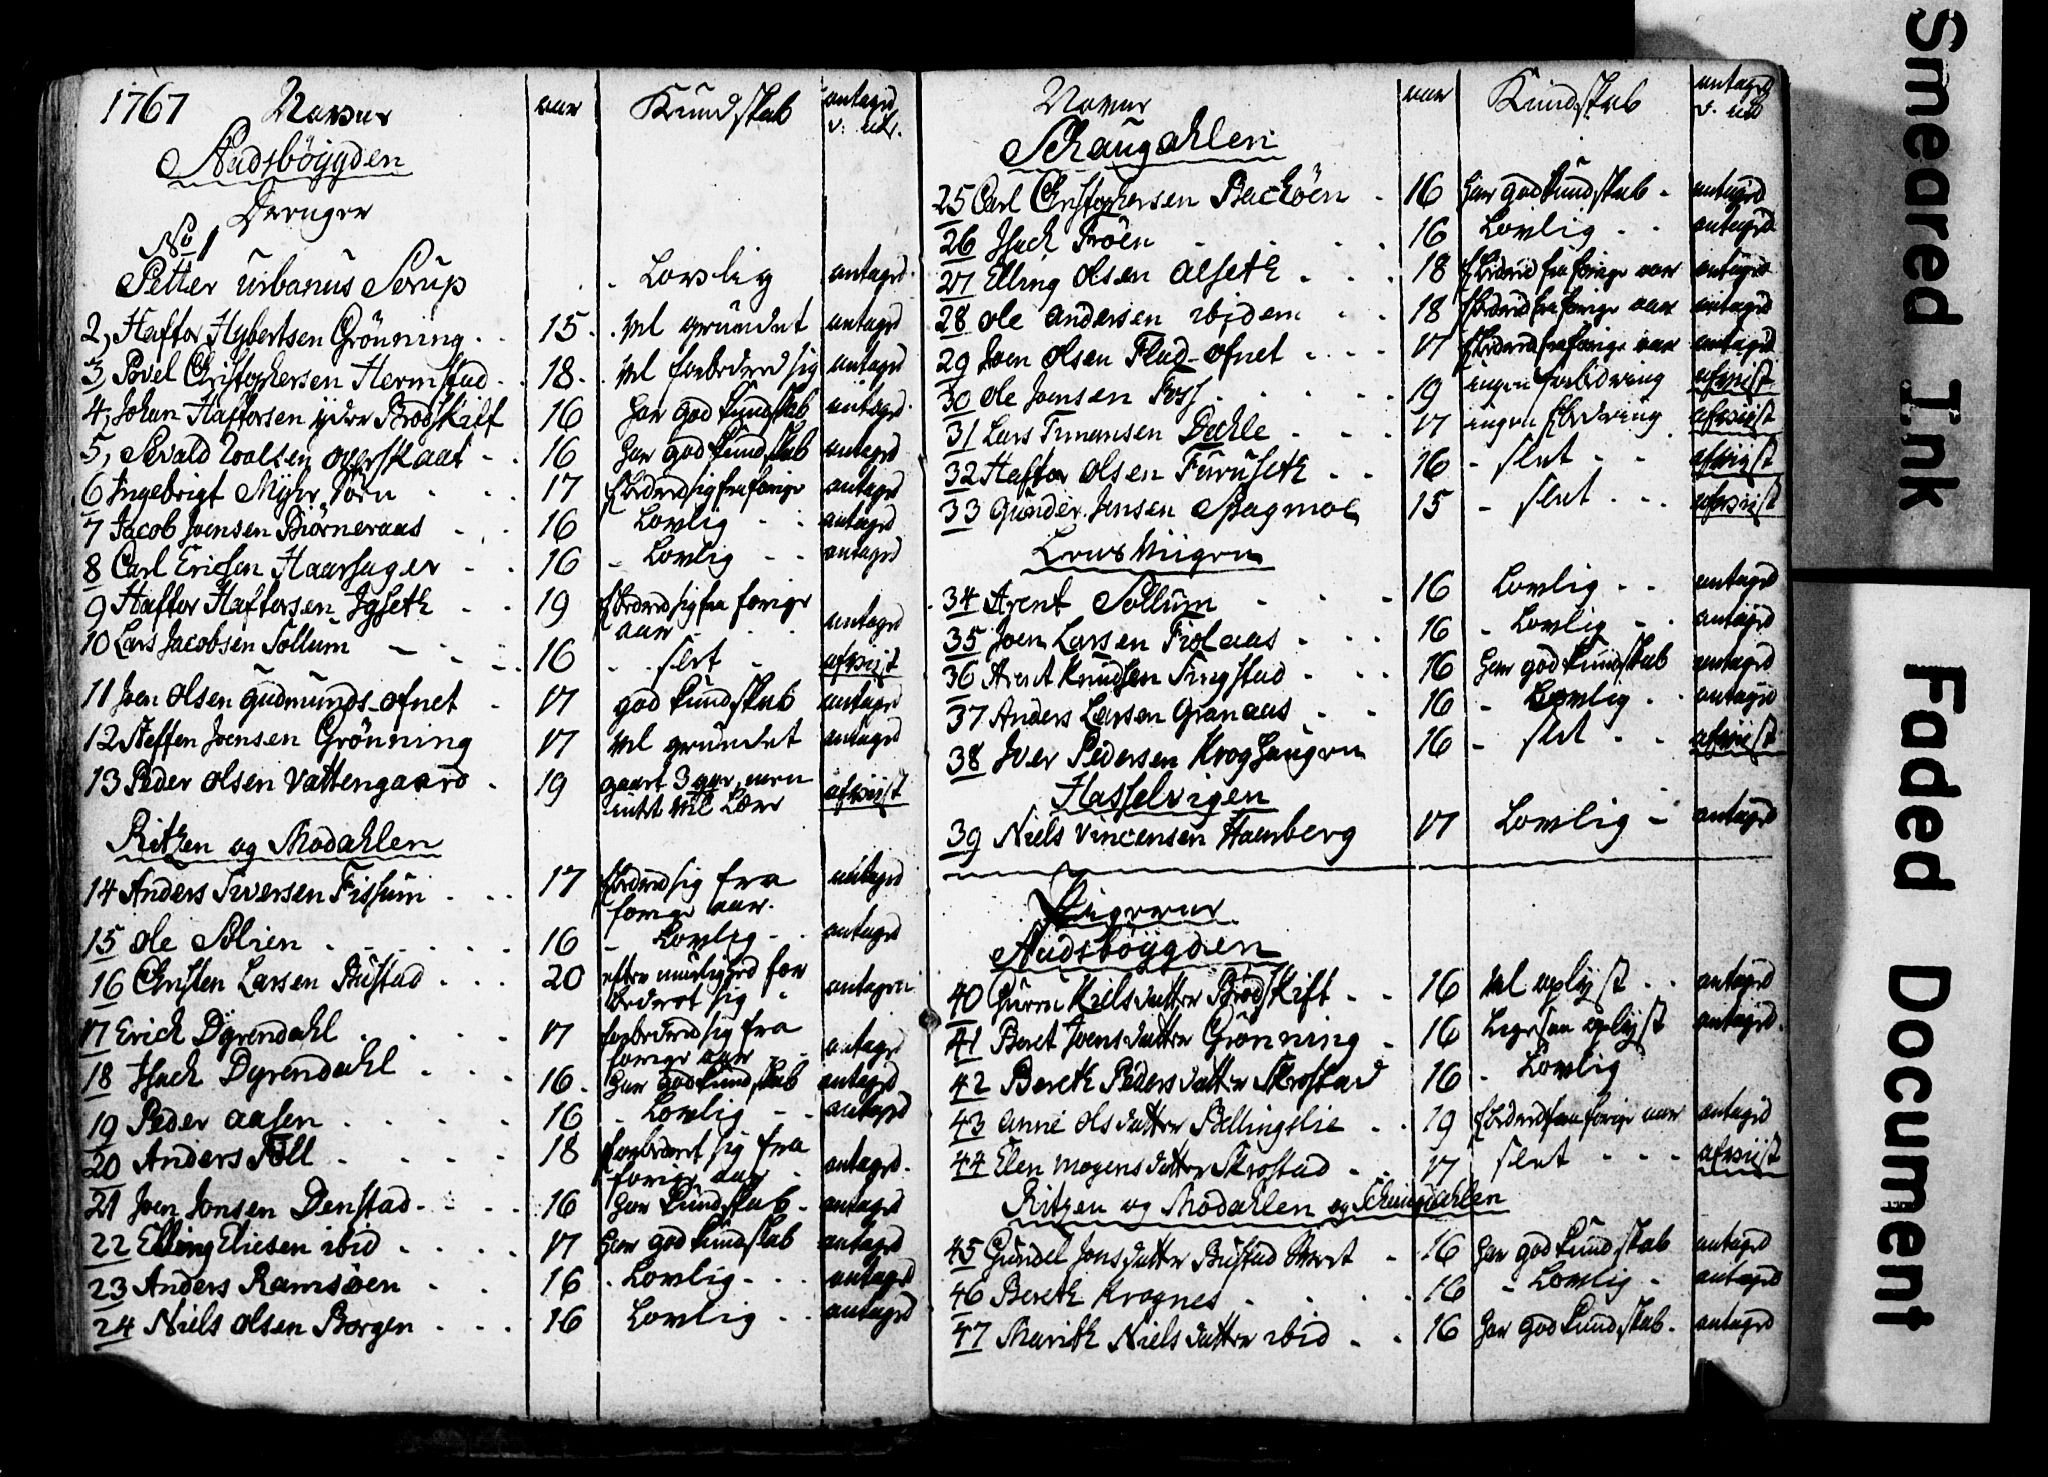 1767 Navne aar Kundskab antaget v: udv.
Stadsböÿgden
Drenger
No 1
Petter Urbanus Sorup Lovlig antaged
2, Haftor Hybertsen Grönning 15 vel grundet antaged
3, Povel Christophersen Hermstad 18 vel forbedred sig antaged
4, Johan Haftorsen ÿdre Brodskift 16 har god kundskab antaged
5, Sivald overskaat 16 har god kundskab antaged
6 Ingebrigt Myhr 17 forbedred sig fra forige antaged
7 Jacob Joensen Biörneraas 16 Lovlig antaged
8 Carl Ericksen Haarsager 16 Lovlig antaged
9 Haftor Haftorsen Igseth 19 forbedred sig fra forige
aar antaged
10 Lars Jacobsen Sollum 16 slet afviist
11 Joen olsen gudmunds-ofnet 17 god kundskab antaged
12 Steffen Joensen Grönning 17 vel grundet antaged
13 Peder olsen Vattengaard 19 gaaet 3 gange, men
intet vil Lære afviist
Ritzen og Modahlen
14 Anders Iversen Fissum 17 forbedred sig fra
forige aar antaged
15 ole Solien 16 Lovlig antaged
16 Christen Larsen Bustad 20 efter muelighed for
bedret sig antagen
17 Erick Dÿrendahl 17 forbedred sig fra
forige aar antaged
18 Isack Dyrendahl 16 har god kundskab antaged
19 Peder aasen 16 Lovlig antaged
20 Anders Föll 18 forbedret sig fra
forige aar antaged
21 Joen Jonsen Denstad 16 har kundskab antaged
22 Elling Eliesen ibid 17 har god kundskab antaged
23 Anders Ramsöen 16 Lovlig antaged
24 Niels olsen Borgen 16 Lovlig antaged
Navne aar Kundskab antaget v: udv
Schaugdahlen
25 Carl Christophersen Backöen 16 har god kundskab antaged
26 Isack Fröen 16 Lovlig antaged
27 Elling olsen alseth 18 forbedred fra forige aar antaged
28 ole andersen ibidem 18 forbedred fra forige aar antaged
29 Joen olsen Flad-ofnet 17 forbedred fra forige aar antaged
30 ole Joensen Foss 19 ingen forbedring afviist
31 Lars Dahle 17 ingen forbedring afviist
32 Haftor olsen Furuseth 16 slet afviist
33 gunder Jensen 15 slet afviist
Lensviigen
34 Arent Sollum 16 Lovlig antaged
35 Joen Larsen Frolaas 16 Lovlig antaged
36 Arent Knudsen Singstad 16 har god kundskab antaged
37 Anders Larsen Granaas 16 Lovlig antaged
38 Iver Pedersen Kroghaugen 16 slet afviist
Hasselvigen
39 Niels Vincensen Hamberg 17 Lovlig antaged
Pigerne
Stadsböÿgden
40 Guren Nielsdatter Brodskift 16 vel oplÿst antaged
41 Beret Joensdatter Grönning 16 Ligesaa oplÿst antaged
42 Bereth Pedersdatter Skrostad 16 Lovlig
43 anne olsdatter Ballingslie 19 forbedred fra forige aar antaged
44 Elen mogensdatter Skrostad 17 slet afviist
Ritzen og Modahlen og Schaugdahlen
45 Gundel Jonsdatter Bustad 16 har god kundskab antaged
46 Bereth Krognes 16 Lovlig antaged
47 Marith Nielsdatter ibid 16 har god kundskab antaged
Smeared Ink
Faded Document